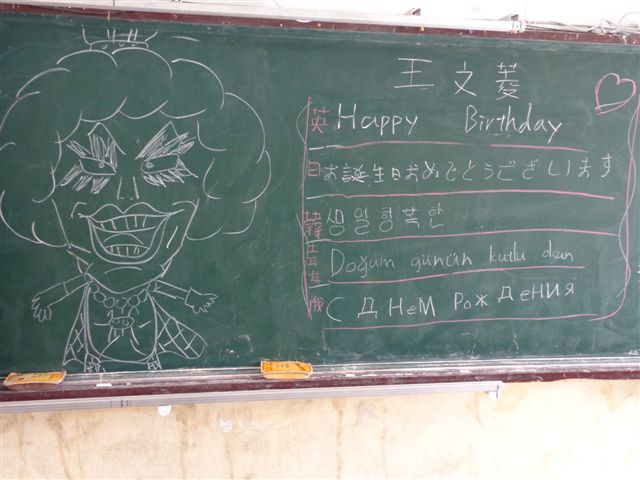 王文菱
英 Happy Birthday
日 お誕生日おめでとうございます
韓 생일형폭한
土耳其 Doğum günün kutlu olsun
俄 С ДНеМ РОЖДеНИЯ